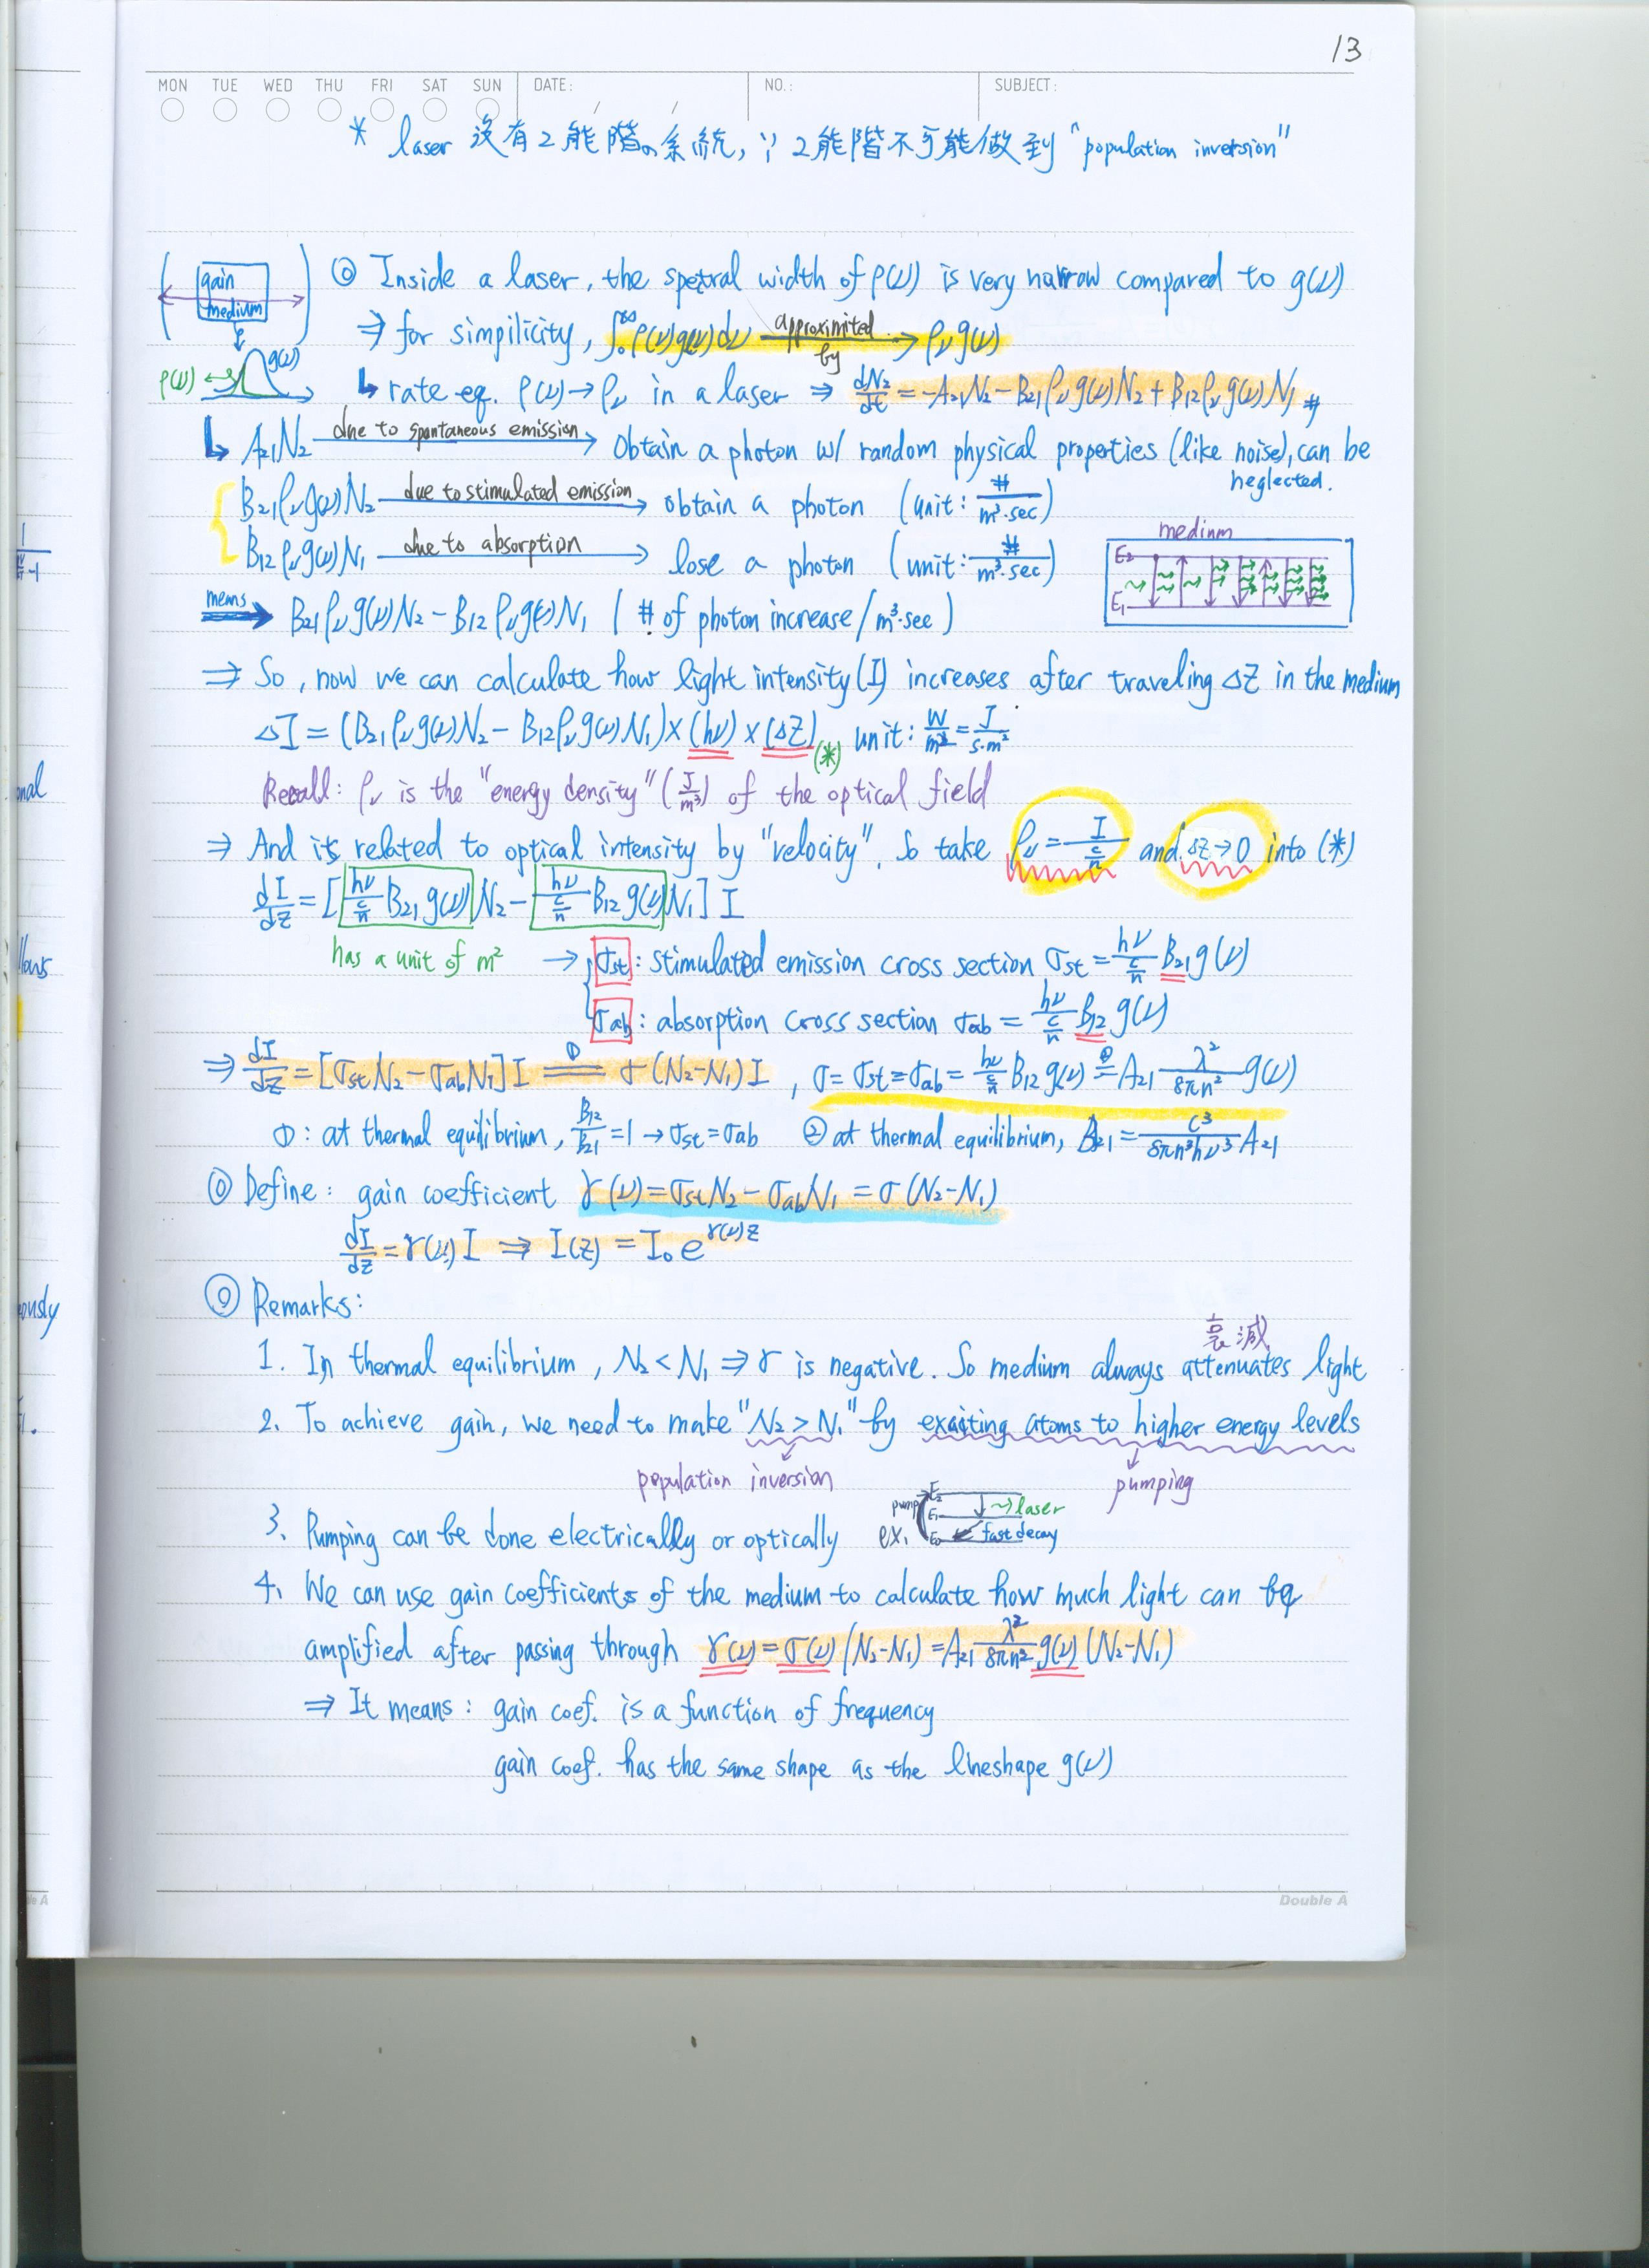 13
MON TUE WED THU FRI SAT SUN DATE: / / NO.: SUBJECT:
* laser 沒有2能階の系統, ∵ 2能階不可能做到 "population inversion"
gain medium
◎ Inside a laser, the spetral width of ρ(ν) is very narrow compared to g(ν)
⇒ for simpilicity, ∫₀^∞ ρ(ν)g(ν)dν approximited by → ρ_ν g(ν)
ρ(ν) g(ν)
↳ rate eq. ρ(ν) → ρ_ν in a laser ⇒ dN₂/dt = -A₂₁N₂ - B₂₁ρ_ν g(ν)N₂ + B₁₂ρ_ν g(ν)N₁ #
↳ A₂₁N₂ due to spontaneous emission → Obtain a photon w/ random physical properties (like noise), can be
neglected.
B₂₁ρ_ν g(ν)N₂ due to stimulated emission → obtain a photon (unit: #/m³·sec)
B₁₂ρ_ν g(ν)N₁ due to absorption → lose a photon (unit: #/m³·sec)
medium
E₂
E₁
means ⇒ B₂₁ρ_ν g(ν)N₂ - B₁₂ρ_ν g(ν)N₁ ( # of photon increase / m³·sec )
⇒ So, now we can calculate how light intensity (I) increases after traveling ΔZ in the medium
ΔI = (B₂₁ρ_ν g(ν)N₂ - B₁₂ρ_ν g(ν)N₁) × (hν) × (ΔZ) (*) unit: W/m² = J/s·m²
Recall: ρ_ν is the "energy density" (J/m³) of the optical field
⇒ And its related to optical intensity by "velocity". So take ρ_ν = I/(c/n) and ΔZ → 0 into (*)
dI/dZ = [ hν/(c/n) B₂₁ g(ν) N₂ - hν/(c/n) B₁₂ g(ν) N₁ ] I
has a unit of m² → σst : stimulated emission cross section σst = hν/(c/n) B₂₁ g(ν)
σab : absorption cross section σab = hν/(c/n) B₁₂ g(ν)
⇒ dI/dZ = [σst N₂ - σab N₁] I =① σ(N₂-N₁) I , σ = σst = σab = hν/(c/n) B₁₂ g(ν) =② A₂₁ λ²/8πn² g(ν)
①: at thermal equilibrium, B₁₂/B₂₁ = 1 → σst = σab ② at thermal equilibrium, B₂₁ = c³/8πn³hν³ A₂₁
◎ Define: gain coefficient γ(ν) = σst N₂ - σab N₁ = σ(N₂-N₁)
dI/dZ = γ(ν) I ⇒ I(Z) = I₀ e^γ(ν)Z
◎ Remarks:
衰減
1. In thermal equilibrium, N₂ < N₁ ⇒ γ is negative. So medium always attenuates light
2. To achieve gain, we need to make "N₂ > N₁" by exciting atoms to higher energy levels
population inversion pumping
3. Pumping can be done electrically or optically ex. pump E₂ E₁ E₀ laser fast decay
4. We can use gain coefficients of the medium to calculate how much light can be
amplified after passing through γ(ν) = σ(ν)(N₂-N₁) = A₂₁ λ²/8πn² g(ν)(N₂-N₁)
⇒ It means : gain coef. is a function of frequency
gain coef. has the same shape as the lineshape g(ν)
Double A